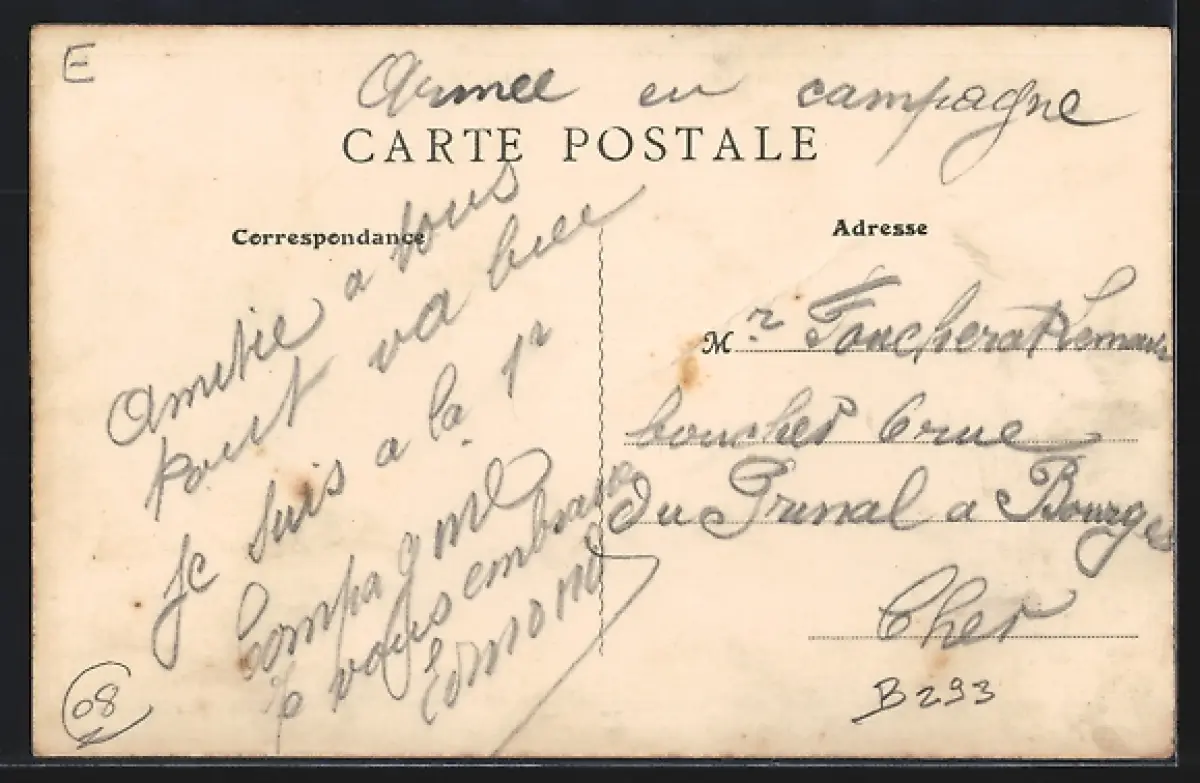 E
Armee en campagne
CARTE POSTALE
Correspondance
Amitie a tous
tout va bien
je suis a la 1r
Compagnie
je vous embrasse
Edmond
Adresse
Mr Foucherat
boucher 6 rue
du Prinal a Bourges
Cher
08
B293